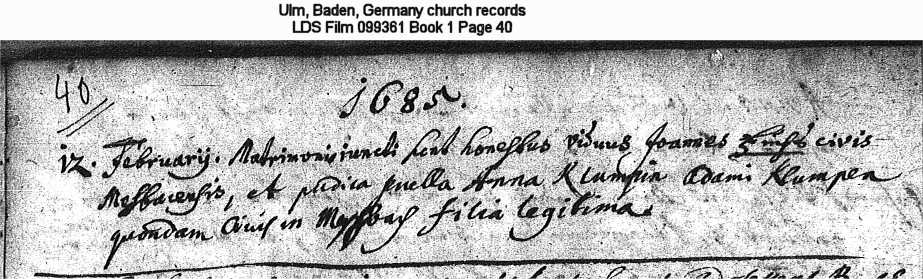 Ulm, Baden, Germany church records
LDS Film 099361 Book 1 Page 40
40
1685.
12. Februarij. Matrimonio iuncti sunt honestus viduus Joannes civis
Mosbacensis, et pudica puella Anna Klumpin Adami Klumpen
quondam Civis in Mossbach filia legitima.